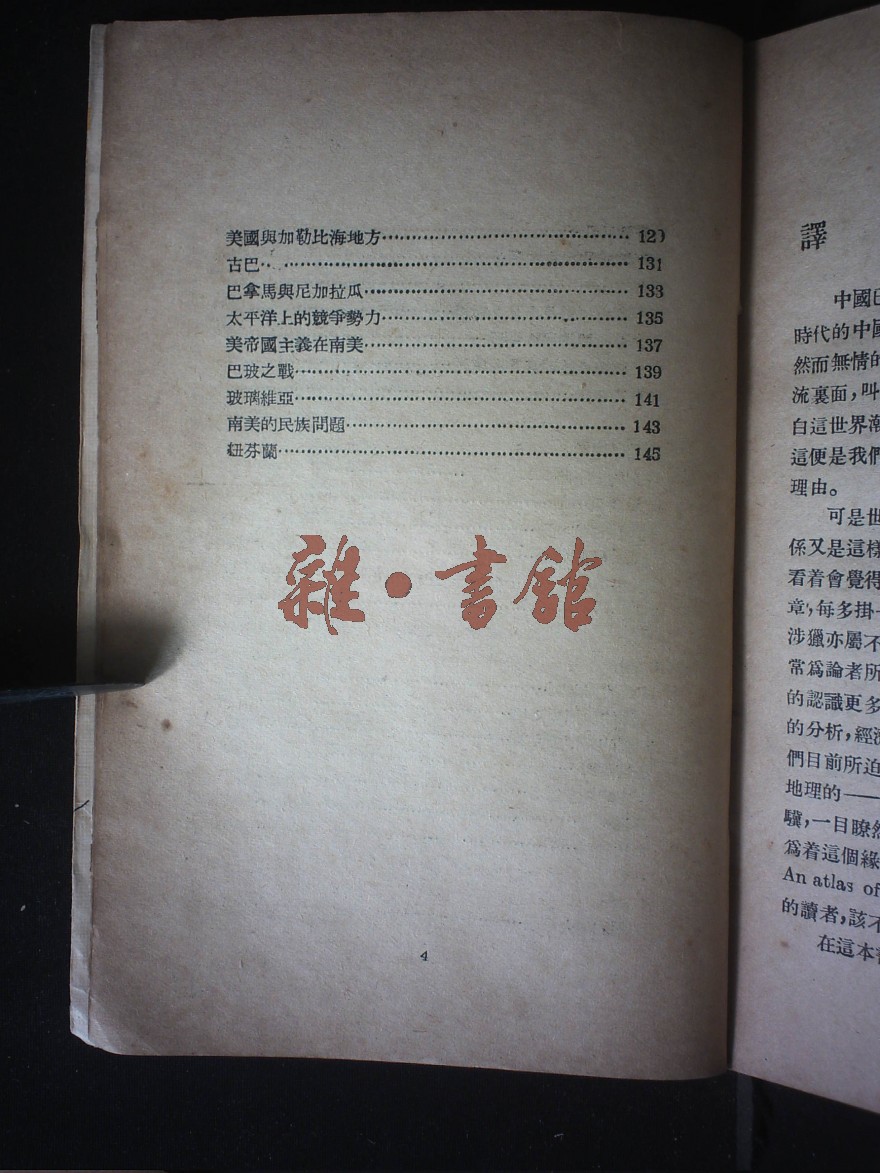 美國與加勒比海地方 129
古巴 131
巴拿馬與尼加拉瓜 133
太平洋上的競爭勢力 135
美帝國主義在南美 137
巴玻之戰 139
玻璃維亞 141
南美的民族問題 143
紐芬蘭 145
雜·書館
4
譯
中國已
時代的中國
然而無情的
流裏面，叫
白這世界潮
這便是我們
理由。
可是世
係又是這樣
看着會覺得
章，每多掛
涉獵亦屬不
常爲論者所
的認識更多
的分析，經濟
們目前所迫
地理的——
驥，一目瞭然
爲着這個緣
An atlas of
的讀者，該不
在這本書